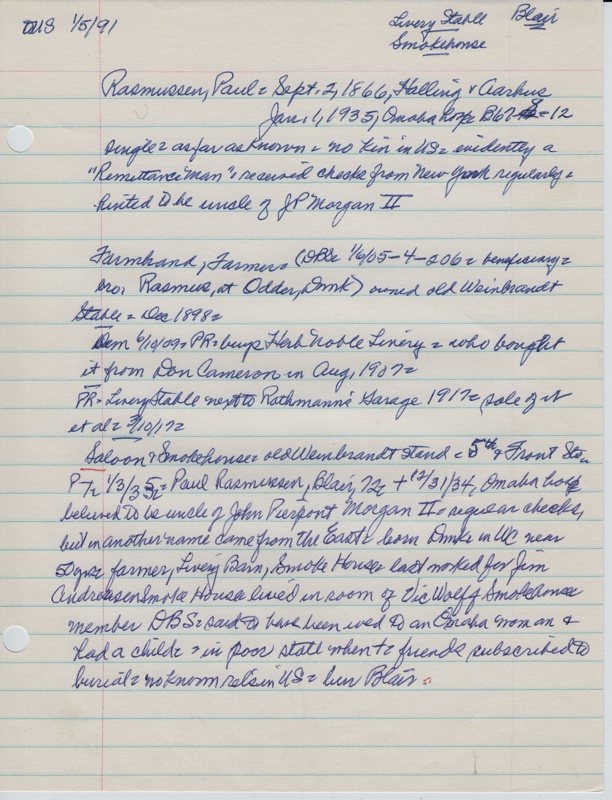 1/5/91
Livery Stable Blair
Smokehouse
Rasmussen, Paul = Sept. 2, 1866, Halling & Aarhus
Jan. 1, 1935, Omaha hosp B67 = 12
single = as far as known = no kin in US = evidently a
"Remittance man" = received checks from New York regularly =
hinted to be uncle of JP Morgan II
Farmhand, Farmer = (DBS = 1/6/05-4-206 = beneficiary =
bro. Rasmus, at Odder, Dmk) owned old Weinbrandt
Stable = Dec 1898 =
Dem 6/10/09 = PR = buys Herb Noble Livery = who bought
it from Don Cameron in Aug, 1907 =
PR = Livery Stable next to Rathmann's Garage 1917 = sale of it
et al = 9/10/17 =
Saloon & Smokehouse = old Weinbrandt stand = 5th & Front Sts =
1/3/35 = Paul Rasmussen, Blair, 72 = + 12/31/34, Omaha hosp
believed to be uncle of John Pierpont Morgan II = regular checks,
but in another name came from the East = born Dmk = in WC near
50 yrs = farmer, Livery Barn, Smoke House = last worked for Jim
Andreasen Smoke House = lived in room of Vic Wolff Smokehouse
member DBS = said to have been wed to an Omaha woman &
had a child = in poor state when + = friends subscribed to
burial = no known rels in US = bur Blair =